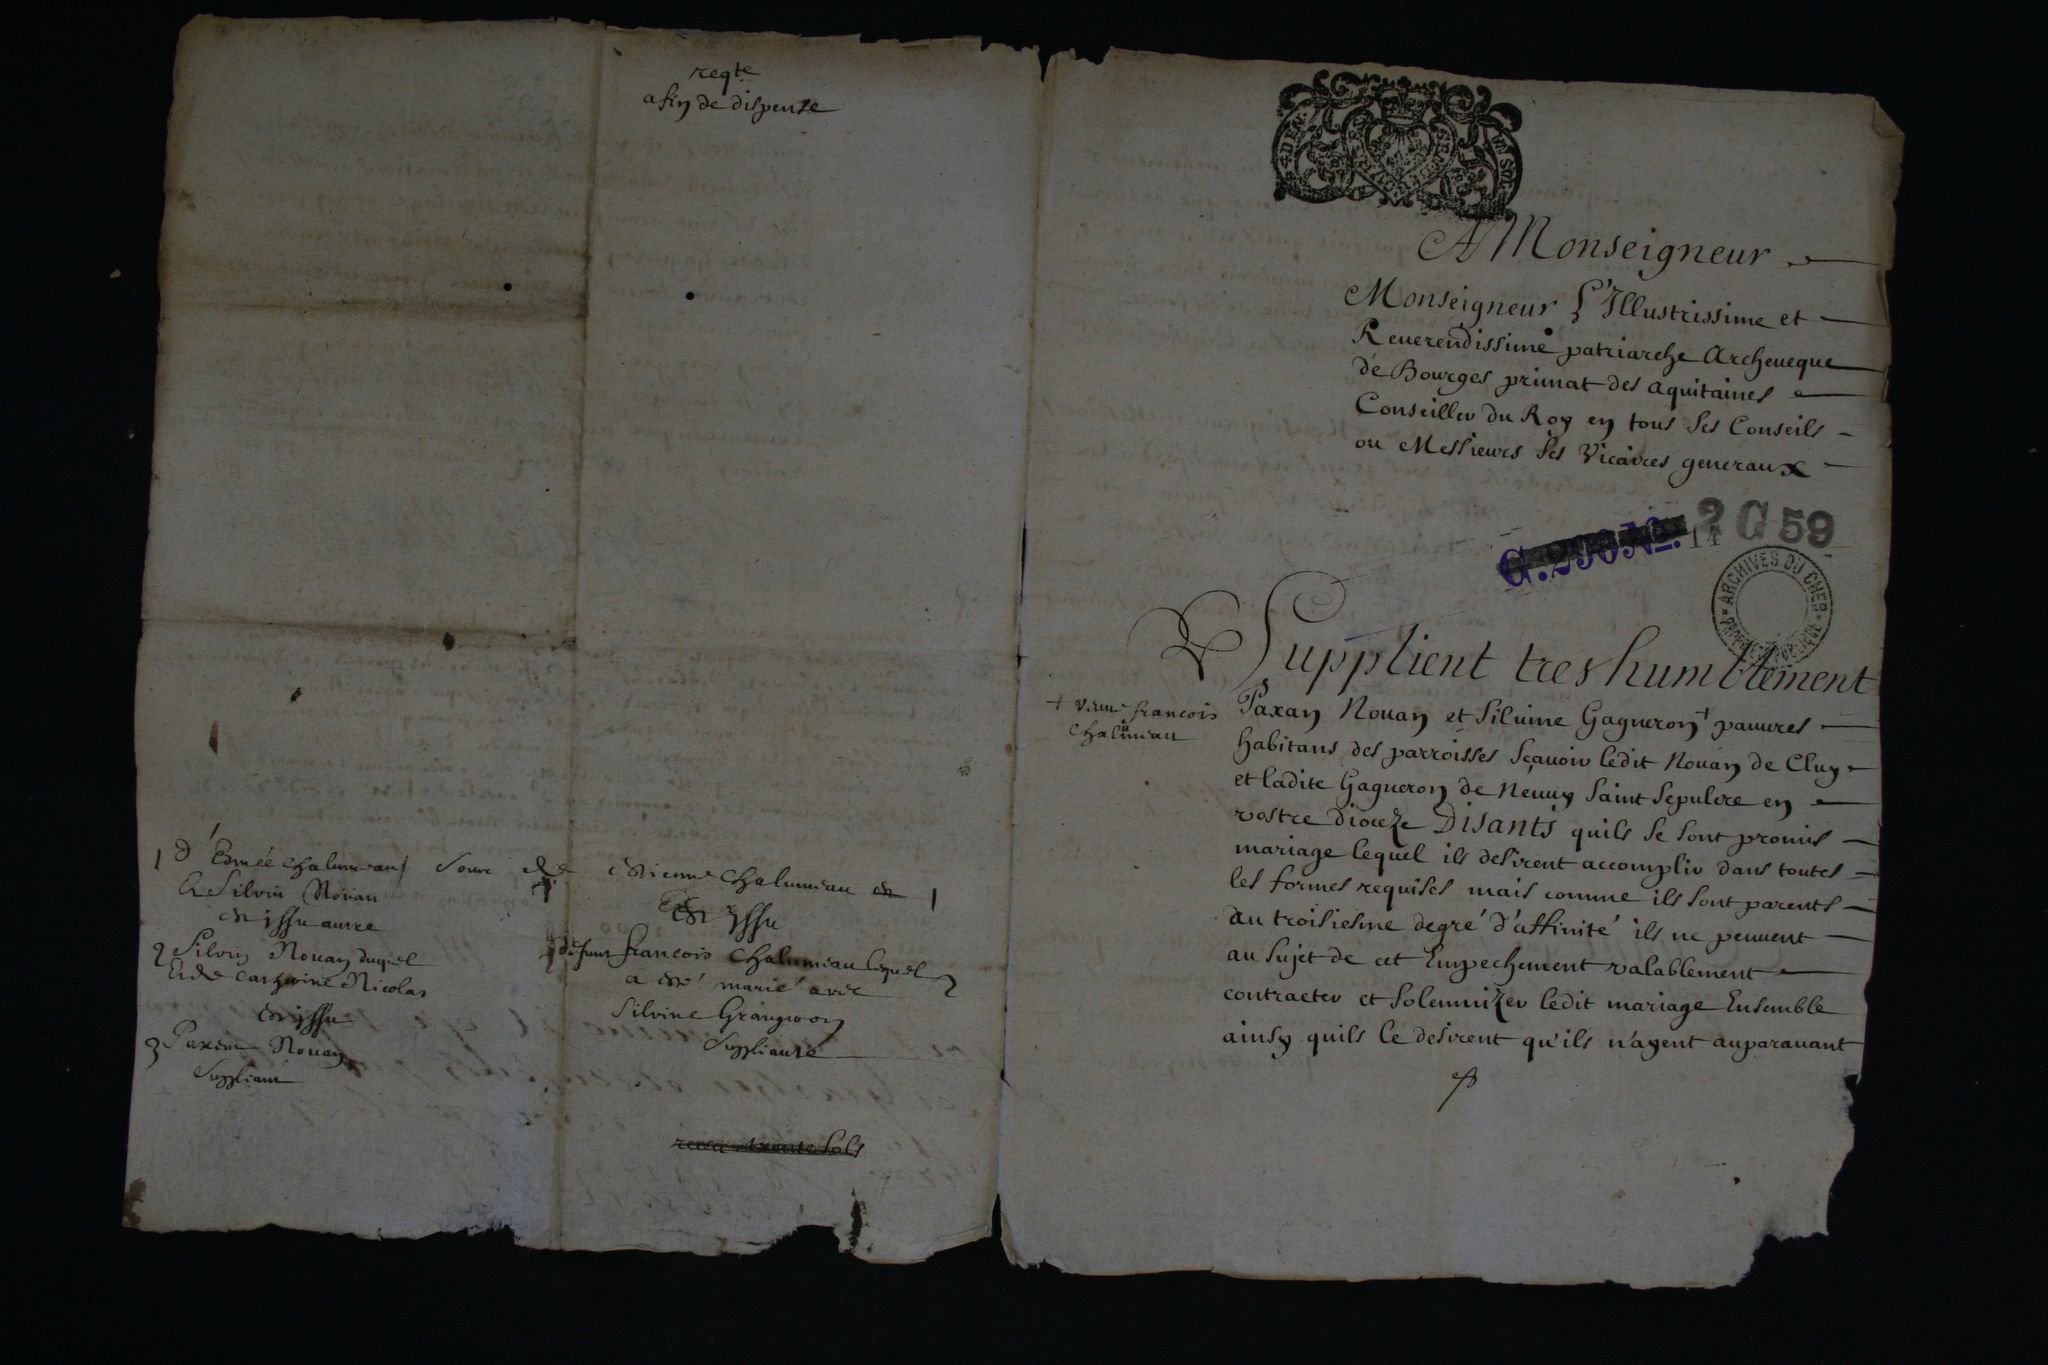 reqte
afin de dispense
1 d'Esmée chalumeau soeur de Estienne chalumeau 1
& Silvin Nouan
est issu autre
est yssu
2 Silvin Nouan duquel
Et de Catherine Nicolas
est issu
3 Paxan Nouan
Suppliant
deffunt francois chalumeau lequel 2
a esté marié avec
Silvine Grangeron
Suppliante
A Monseigneur
Monseigneur L'Illustrissime et
Reuerendissime patriarche Archeueque
de Bourges primat des aquitaines
Conseiller du Roy en tous ses Conseils
ou Messieurs ses Vicaires generaux
G.290 No. 14 2 G 59
ARCHIVES DU CHER
Supplient tres humblement
+ veuue francois
chalumeau
Paxan Nouan et Siluine Gagneron + pauures
habitans des parroisses sçauoir ledit Nouan de Cluy
et ladite Gagneron de Neuuy Saint Sepulcre en
vostre dioceze Disants quils se sont promis
mariage lequel ils desirent accomplir dans toutes
les formes requises mais comme ils sont parents
au troisiesme degré d'affinité ils ne peuuent
au sujet de cet Empechement valablement
contracter et solemnizer ledit mariage Ensemble
ainsy quils le desirent qu'ils n'ayent auparauant